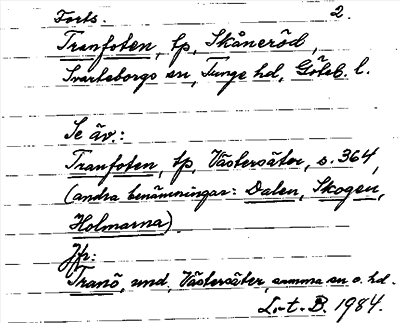 Forts. 2.
Tranfoten, tp, Skåneröd,
Svarteborgs sn, Tunge hd, Göteb. l.
Se äv.:
Tranfoten, tp, Västersäter, s. 364,
(andra benämningar: Dalen, Skogen,
Holmarna).
Jfr:
Tranö, und. Västersäter, samma sn o. hd.
L-t. B. 1984.